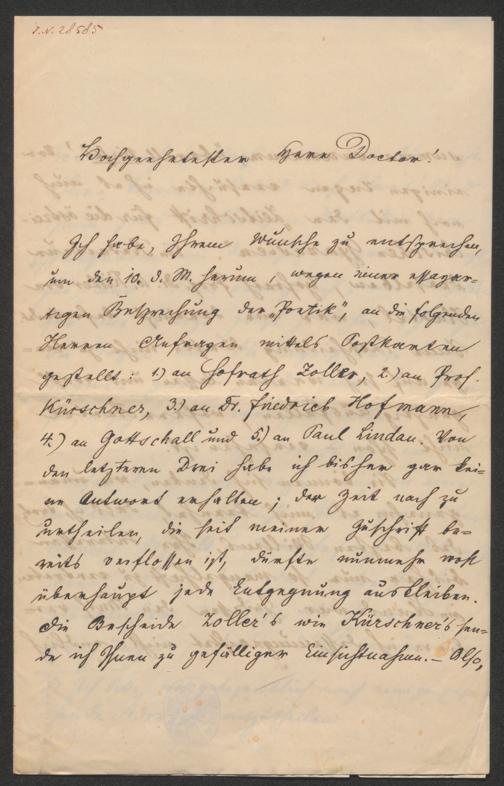 I.N. 28585
Hochgeehrtester Herr Doctor!
Ich habe, Ihrem Wunsche zu entsprechen,
um den 10. d. M. herum, wegen einer essayar-
tigen Besprechung der „Poetik", an die folgenden
Herren Anfragen mittels Postkarten
gestellt: 1.) an Hofrath Zoller, 2.) an Prof.
Kürschner, 3.) an Dr. Friedrich Hofmann,
4.) an Gottschall und 5.) an Paul Lindau. Von
den letzteren Drei habe ich bisher gar kei-
ne Antwort erhalten; der Zeit nach zu
urtheilen, die seit meiner Zuschrift be-
reits verflossen ist, dürfte nunmehr wohl
überhaupt jede Entgegnung ausbleiben.
Die Bescheide Zoller's wie Kürschner's sen-
de ich Ihnen zu gefälliger Einsichtnahme. – Also,